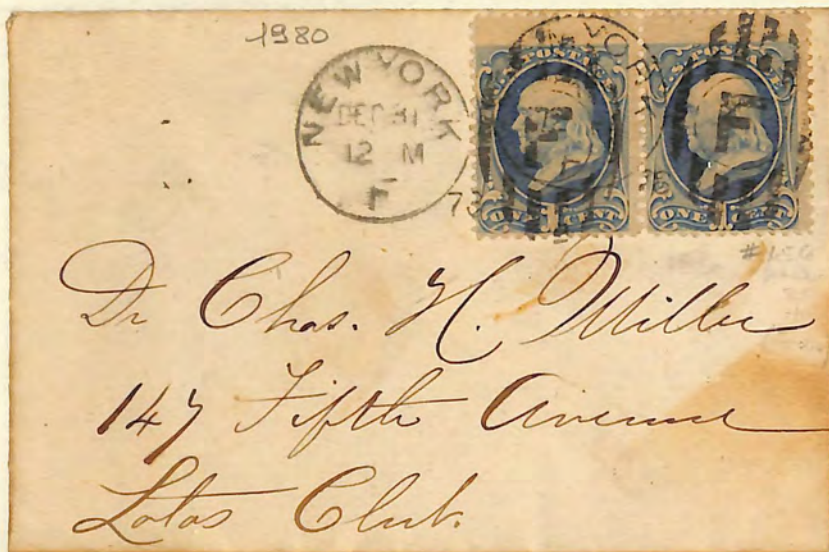 1980
NEW YORK
DEC 31
12 M
F
73
U.S. POSTAGE
ONE 1 CENT
F
U.S. POSTAGE
ONE 1 CENT
F
#156
Dr Chas. H. Miller
147 Fifth Avenue
Lotos Club.